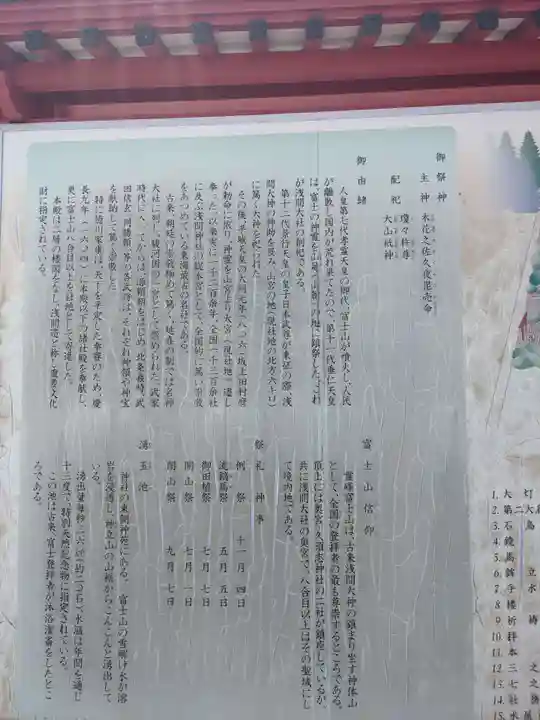 御祭神
主神 木花之佐久夜毘売命
配祀 瓊々杵尊
大山祇神
御由緒
人皇第七代孝霊天皇の御代、富士山が噴火し人民
が離散し国内が荒れ果てたので、第十一代垂仁天皇
は、富士の神霊を山足の地に鎮祭した。これ
が浅間大社の創祀である。
第十二代景行天皇の皇子日本武尊が東征の際、浅
間大神の神助を崇み、山宮の地(現社地の北方六キロ)
に篤く大神を祀られた
その後、平城天皇の大同元年(八〇六)坂上田村麿
が勅命に依り、神霊を山宮より大宮(現社地)に遷し
奉った。以来実に一千二百余年、全国一千三百余社
に及ぶ浅間神社の総本宮として、全国的に篤い崇敬
をあつめている東海最古の名社である。
古来、朝廷の崇敬極めて篤く、延喜の制では名神
大社に列し、駿河国の一宮として崇められた。武家
時代に入ってからは、源頼朝をはじめ、北条義時、武
田信玄、同勝頼等の各武将は、それぞれ神領や神宝
を献納して篤く崇敬した。
特に徳川家康は天下を平定した奉賽のため、慶
長九年(一六〇四)に本殿以下の諸社殿を奉献し、
更に富士山八合目以上を社地として寄進した。
本殿は二層の楼閣をなし、浅間造と称し重要文化
財に指定されている。
富士山信仰
霊峰富士山は、古来浅間大神の鎮まり坐す神体山
として、全国の登拝者の最も尊崇するところである。
頂上には奥宮、久須志神社の二社が鎮座しているが
共に浅間大社の奥宮で、八合目以上はその聖域にし
て境内地である。
祭礼神事
例祭 十一月四日
流鏑馬祭 五月五日
御田植祭 七月七日
開山祭 七月一日
閉山祭 九月七日
湧玉池
神社の東側神苑にある。富士山の雪解け水が溶
岩を浸透し、神立山の山裾からこんこんと湧出して
いる。
湧出量毎秒二・六㎘(約二〇石)、水温は年間を通じ
十三度で、特別天然記念物に指定されている。
この池は古来、富士登拝者が沐浴潔斎をしたとこ
ろである。
1.
2.
3.
4.
5.
6.
7.
8.
9.
10.
11.
12.
13.
14.
15.